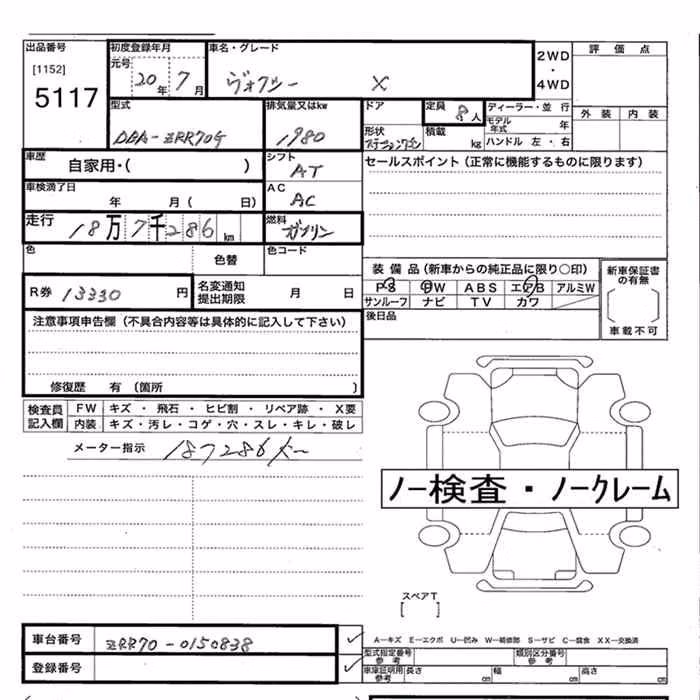 出品番号 初度登録年月 車名・グレード 2WD ・ 4WD 評価点
[1152] 元号 20年 7月 ヴォクシー X
5117 外装 内装
型式 排気量又はkw ドア 定員 8人 ディーラー・並行
DBA-ZRR70G 1980 形状 ステーションワゴン 積載 kg モデル年式 年
ハンドル 左・右
車歴 自家用・( ) シフト AT セールスポイント(正常に機能するものに限ります)
車検満了日 年 月( 日) AC AC
走行 18万7千286km 燃料 ガソリン
色 色替 色コード
装備品(新車からの純正品に限り○印) 新車保証書の有無
R券 13330円 名変通知提出期限 月 日 PS PW ABS エアB アルミW
サンルーフ ナビ TV カワ 車載不可
注意事項申告欄(不具合内容等は具体的に記入して下さい) 後日品
修復歴 有 (箇所 )
検査員記入欄 FW キズ・飛石・ヒビ割・リペア跡・X要
内装 キズ・汚レ・コゲ・穴・スレ・キレ・破レ
メーター指示 187286キロ
ノー検査・ノークレーム
スペアT
[ ]
車台番号 ZRR70-0150838 A―キズ E―エクボ U―凹み W―補修跡 S―サビ C―腐食 XX―交換済
型式指定番号 参考 類別区分番号 参考
登録番号 車庫証明用 参考 長さ cm 幅 cm 高さ cm